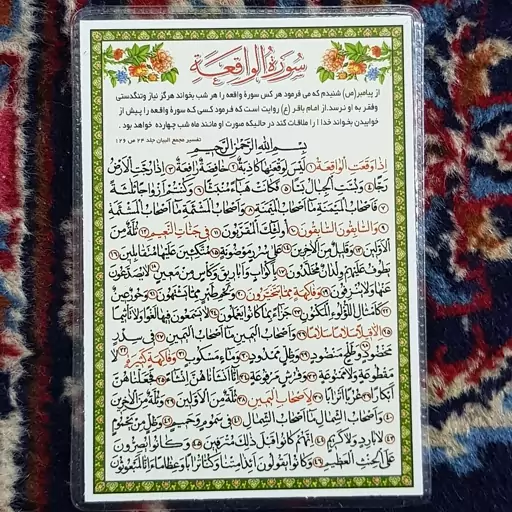 سورة الواقعة
از پیامبر(ص) شنیدم که می فرمود هر کس سورۀ واقعه را هر شب بخواند هرگز نیاز وتنگدستی
وفقر به او نرسد. از امام باقر (ع) روایت است که فرمود کسی که سورۀ واقعه را پیش از
خوابیدن بخواند خدا را ملاقات کند در حالیکه صورت او مانند ماه شب چهارده خواهد بود.
تفسیر مجمع البیان جلد ۲۴ ص ۱۲۶
بسم الله الرحمن الرحیم
إذا وقعت الواقعة ۱ ليس لوقعتها كاذبة ۲ خافضة رافعة ۳ إذا رجت الأرض
رجا ۴ وبست الجبال بسا ۵ فكانت هباء منبثا ۶ وكنتم أزواجا ثلاثة
۷ فأصحاب الميمنة ما أصحاب الميمنة ۸ وأصحاب المشئمة ما أصحاب المشئمة
۹ والسابقون السابقون ۱۰ أولئك المقربون ۱۱ في جنات النعيم ۱۲ ثلة من
الأولين ۱۳ وقليل من الآخرين ۱۴ على سرر موضونة ۱۵ متكئين عليها متقابلين ۱۶
يطوف عليهم ولدان مخلدون ۱۷ بأكواب وأباريق وكأس من معين ۱۸ لا يصدعون
عنها ولا ينزفون ۱۹ وفاكهة مما يتخيرون ۲۰ ولحم طير مما يشتهون ۲۱ وحور عين
۲۲ كأمثال اللؤلؤ المكنون ۲۳ جزاء بما كانوا يعملون ۲۴ لا يسمعون فيها لغوا ولا تأثيما
۲۵ إلا قيلا سلاما سلاما ۲۶ وأصحاب اليمين ما أصحاب اليمين ۲۷ في سدر
مخضود ۲۸ وطلح منضود ۲۹ وظل ممدود ۳۰ وماء مسكوب ۳۱ وفاكهة كثيرة ۳۲ لا
مقطوعة ولا ممنوعة ۳۳ وفرش مرفوعة ۳۴ إنا أنشأناهن إنشاء ۳۵ فجعلناهن
أبكارا ۳۶ عربا أترابا ۳۷ لأصحاب اليمين ۳۸ ثلة من الأولين ۳۹ وثلة من الآخرين
۴۰ وأصحاب الشمال ما أصحاب الشمال ۴۱ في سموم وحميم ۴۲ وظل من يحموم
۴۳ لا بارد ولا كريم ۴۴ إنهم كانوا قبل ذلك مترفين ۴۵ وكانوا يصرون
على الحنث العظيم ۴۶ وكانوا يقولون أئذا متنا وكنا ترابا وعظاما أئنا لمبعوثون